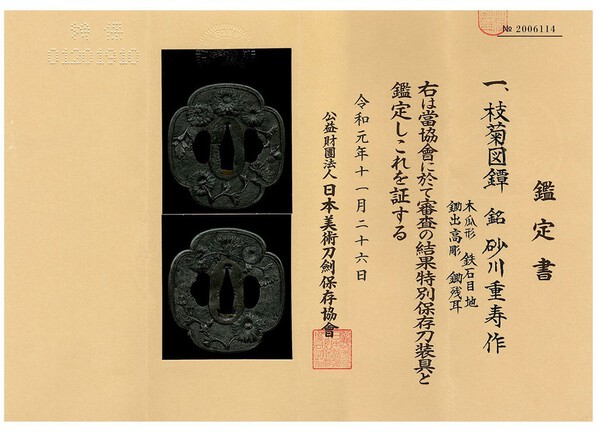 № 2006114
鑑定書
一、枝菊図鐔 銘 砂川重寿作
木瓜形 鉄石目地
鋤出高彫 鋤残耳
右は當協會に於て審査の結果特別保存刀装具と
鑑定しこれを証する
令和元年十一月二十六日
公益財團法人 日本美術刀劍保存協會